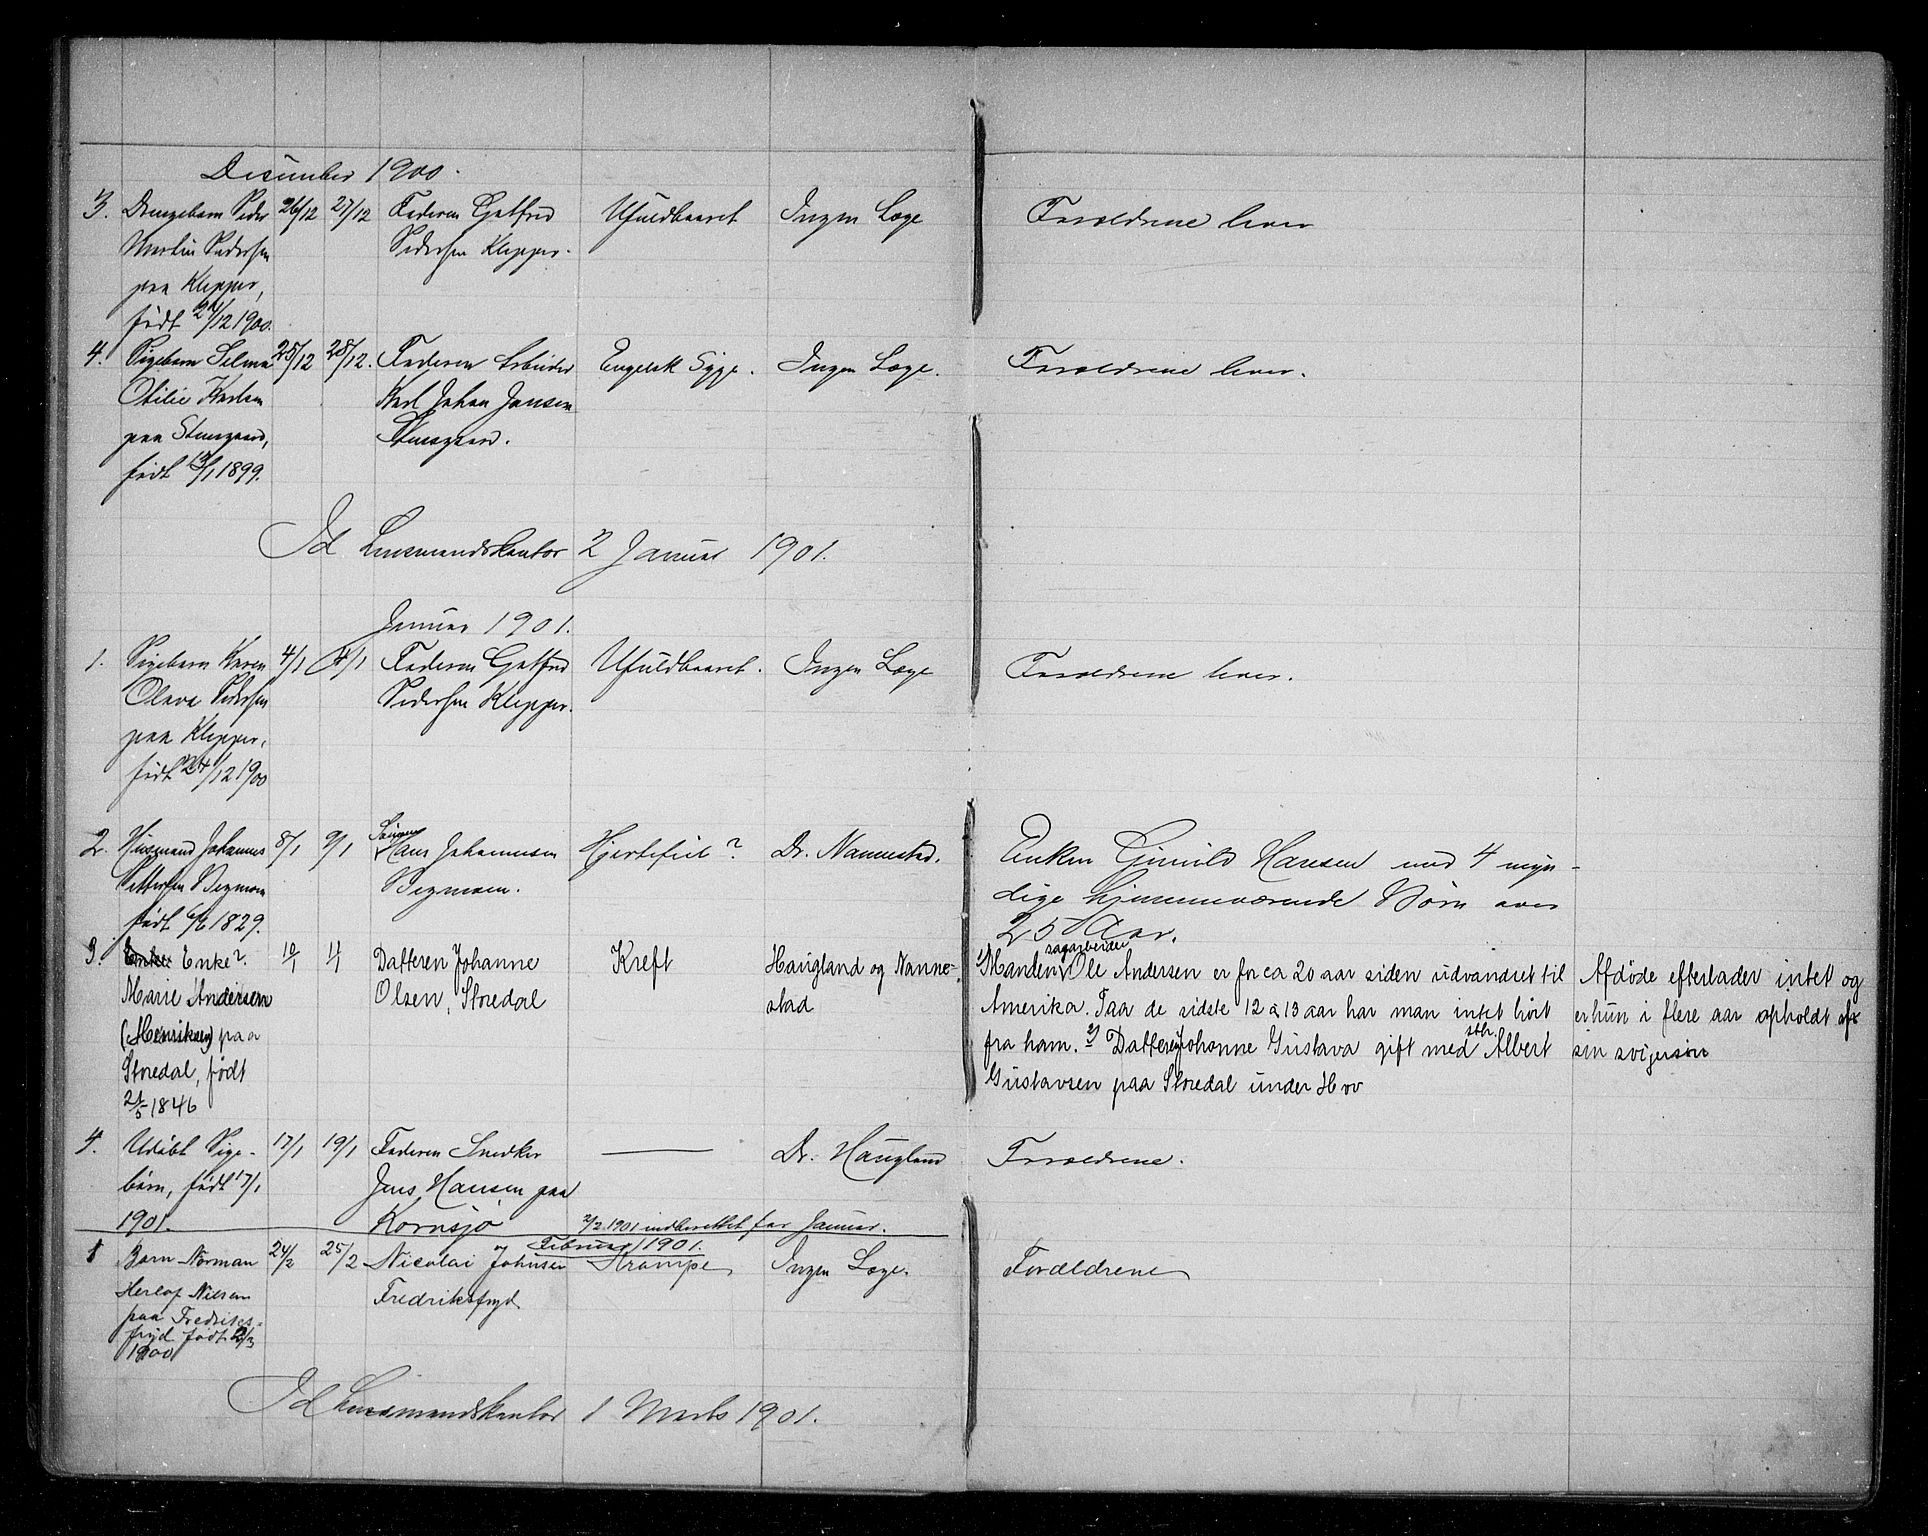 December 1900.
3. Drengebarn Peder 26/12 27/12 Faderen Gotfred Ufuldbaaret Ingen Læge Forældrene lever
Martin Pedersen Pedersen Klepper.
paa Klepper,
født 24/12 1900.
4. Pigebarn Selma 25/12 28/12. Faderen Arbeider Engelsk Syge. Ingen Læge. Forældrene lever.
Otilie Karlsen Karl Johan Jansen
paa Stensgaard, Stensgaard.
født /1 1899.
Id Lensmandskontor 2 Januar 1901.
Januar 1901.
1. Pigebarn Karen 4/1 /1 Faderen Gotfred Ufuldbaaret. Ingen Læge Forældrene lever.
Olava Pedersen Pedersen Klepper.
paa Klepper,
født 24/12 1900
2. Husmand Johannes 8/1 9/1 Sønnen Hans Johannesen Hjertefeil? Dr. Nannestad. Enken Gunild Hansen med 4 myn-
Pettersen Begmoen Begmoen. dige hjemmeværende Børn over
født 1829. 25 Aar.
3. Enke Enke? 10/1 Datteren Johanne Kreft Haugland og Nanne- 1) Manden sagarbeider Ole Andersen er for ca 20 aar siden udvandret til Afdøde efterlader intet og
Marie Andersen Olsen, Storedal stad Amerika. Paa de sidste 12 a 13 aar har man intet hørt er hun i flere aar opholdt af
(Henriksen) paa fra ham. 2) Datteren Johanne Gustava gift med sthr. Albert sin svigersøn
Storedal, født Gustavsen paa Storedal under Hov
21/5 1846
4. Udøbt Pige- 17/1 19/1 Faderen Snedker — Dr. Haugland Forældrene.
børn, født 17/1 Jens Hansen paa
1901. Kornsjø 2/2 1901 indberettet for Januar.
Februar 1901.
1 Barn Norman 24/2 25/2 Nicolai Johnsen Krampe Ingen Læge. Forældrene
Herlof Nilsen Fredriksfryd
paa Fredriks-
fryd født
1900
Id Lensmandskontor 1 Marts 1901.